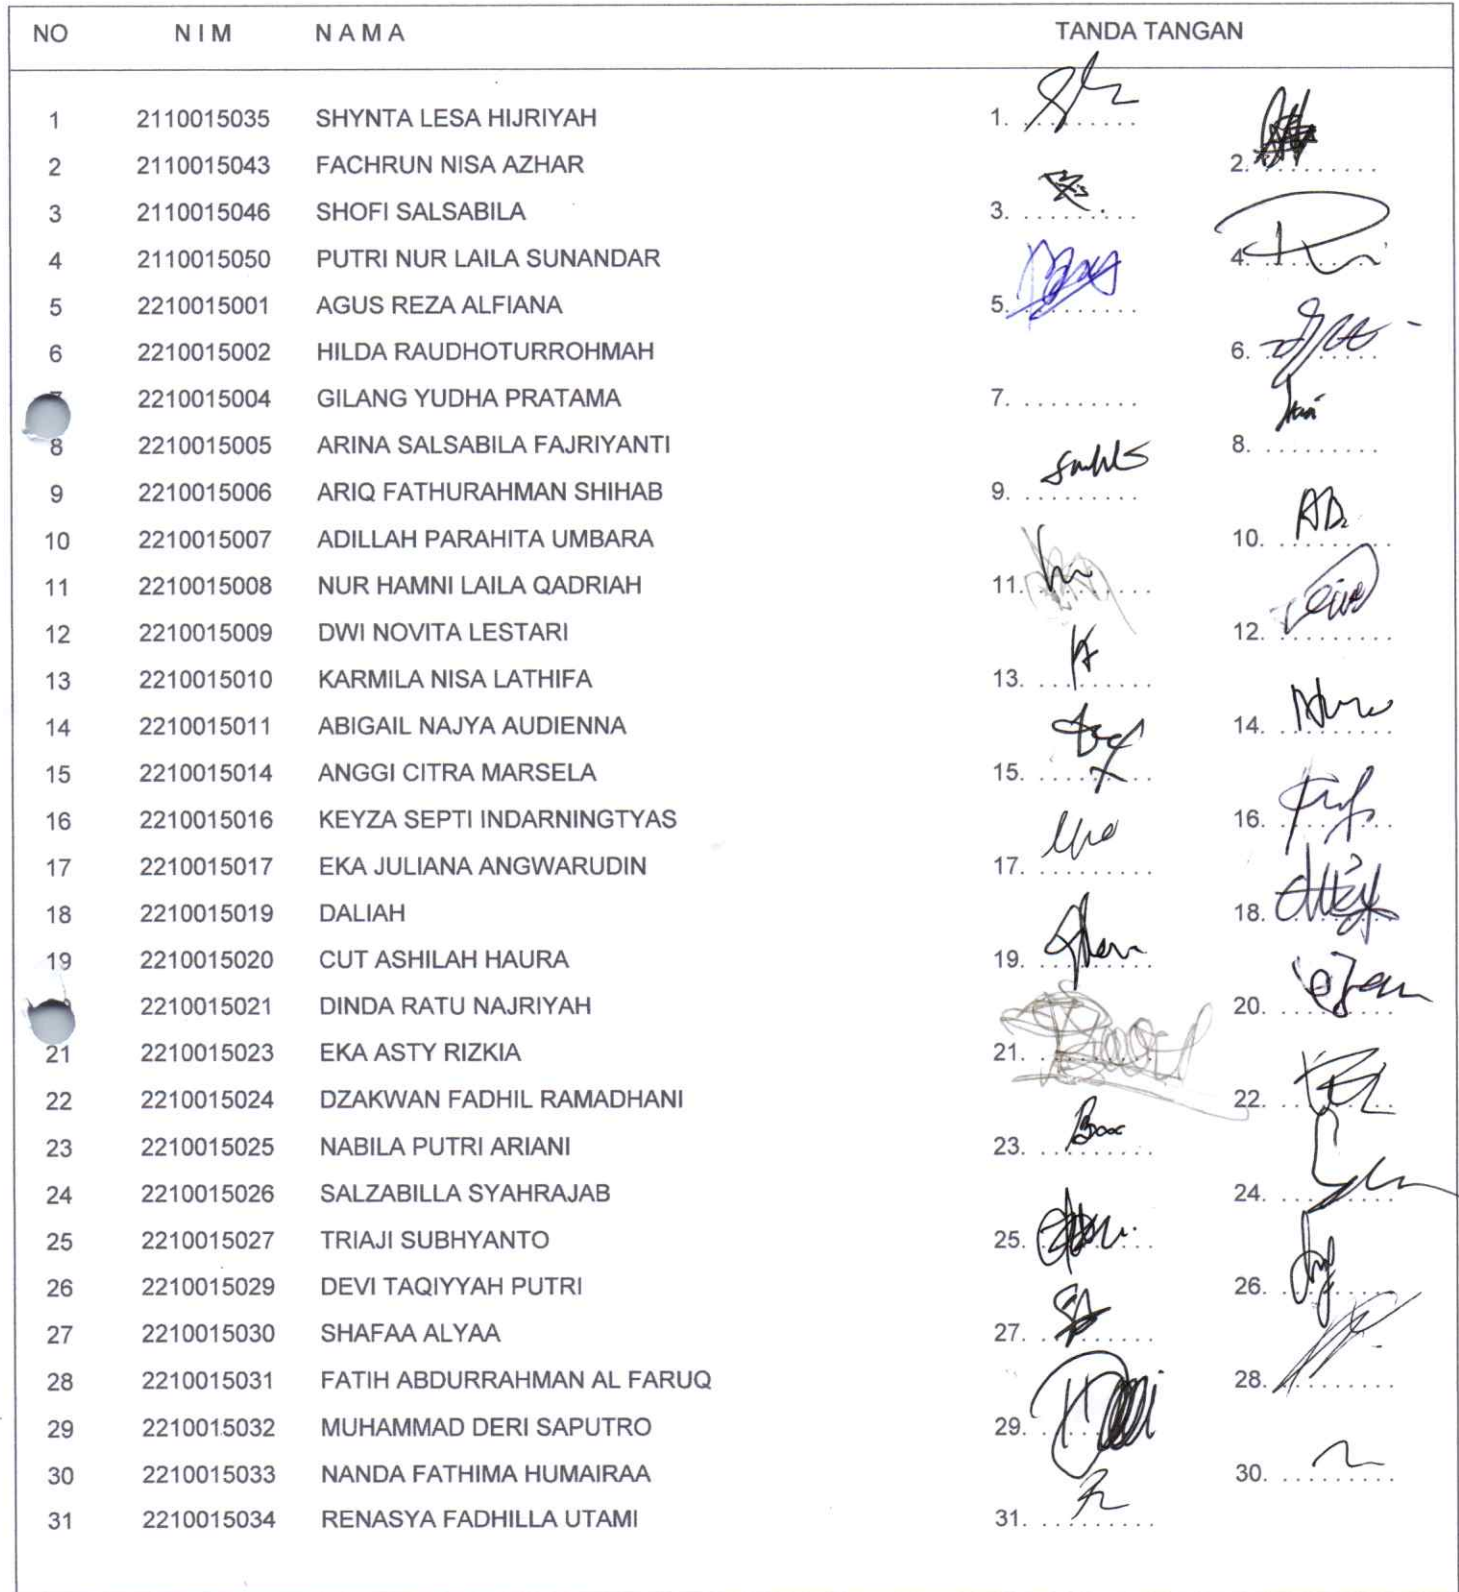 NO NIM NAMA TANDA TANGAN
1 2110015035 SHYNTA LESA HIJRIYAH 1. ..........
2 2110015043 FACHRUN NISA AZHAR 2. ..........
3 2110015046 SHOFI SALSABILA 3. ..........
4 2110015050 PUTRI NUR LAILA SUNANDAR 4. ..........
5 2210015001 AGUS REZA ALFIANA 5. ..........
6 2210015002 HILDA RAUDHOTURROHMAH 6. ..........
2210015004 GILANG YUDHA PRATAMA 7. ..........
8 2210015005 ARINA SALSABILA FAJRIYANTI 8. ..........
9 2210015006 ARIQ FATHURAHMAN SHIHAB 9. ..........
10 2210015007 ADILLAH PARAHITA UMBARA 10. ..........
11 2210015008 NUR HAMNI LAILA QADRIAH 11. ..........
12 2210015009 DWI NOVITA LESTARI 12. ..........
13 2210015010 KARMILA NISA LATHIFA 13. ..........
14 2210015011 ABIGAIL NAJYA AUDIENNA 14. ..........
15 2210015014 ANGGI CITRA MARSELA 15. ..........
16 2210015016 KEYZA SEPTI INDARNINGTYAS 16. ..........
17 2210015017 EKA JULIANA ANGWARUDIN 17. ..........
18 2210015019 DALIAH 18. ..........
19 2210015020 CUT ASHILAH HAURA 19. ..........
2210015021 DINDA RATU NAJRIYAH 20. ..........
21 2210015023 EKA ASTY RIZKIA 21. ..........
22 2210015024 DZAKWAN FADHIL RAMADHANI 22. ..........
23 2210015025 NABILA PUTRI ARIANI 23. ..........
24 2210015026 SALZABILLA SYAHRAJAB 24. ..........
25 2210015027 TRIAJI SUBHYANTO 25. ..........
26 2210015029 DEVI TAQIYYAH PUTRI 26. ..........
27 2210015030 SHAFAA ALYAA 27. ..........
28 2210015031 FATIH ABDURRAHMAN AL FARUQ 28. ..........
29 2210015032 MUHAMMAD DERI SAPUTRO 29. ..........
30 2210015033 NANDA FATHIMA HUMAIRAA 30. ..........
31 2210015034 RENASYA FADHILLA UTAMI 31. ..........